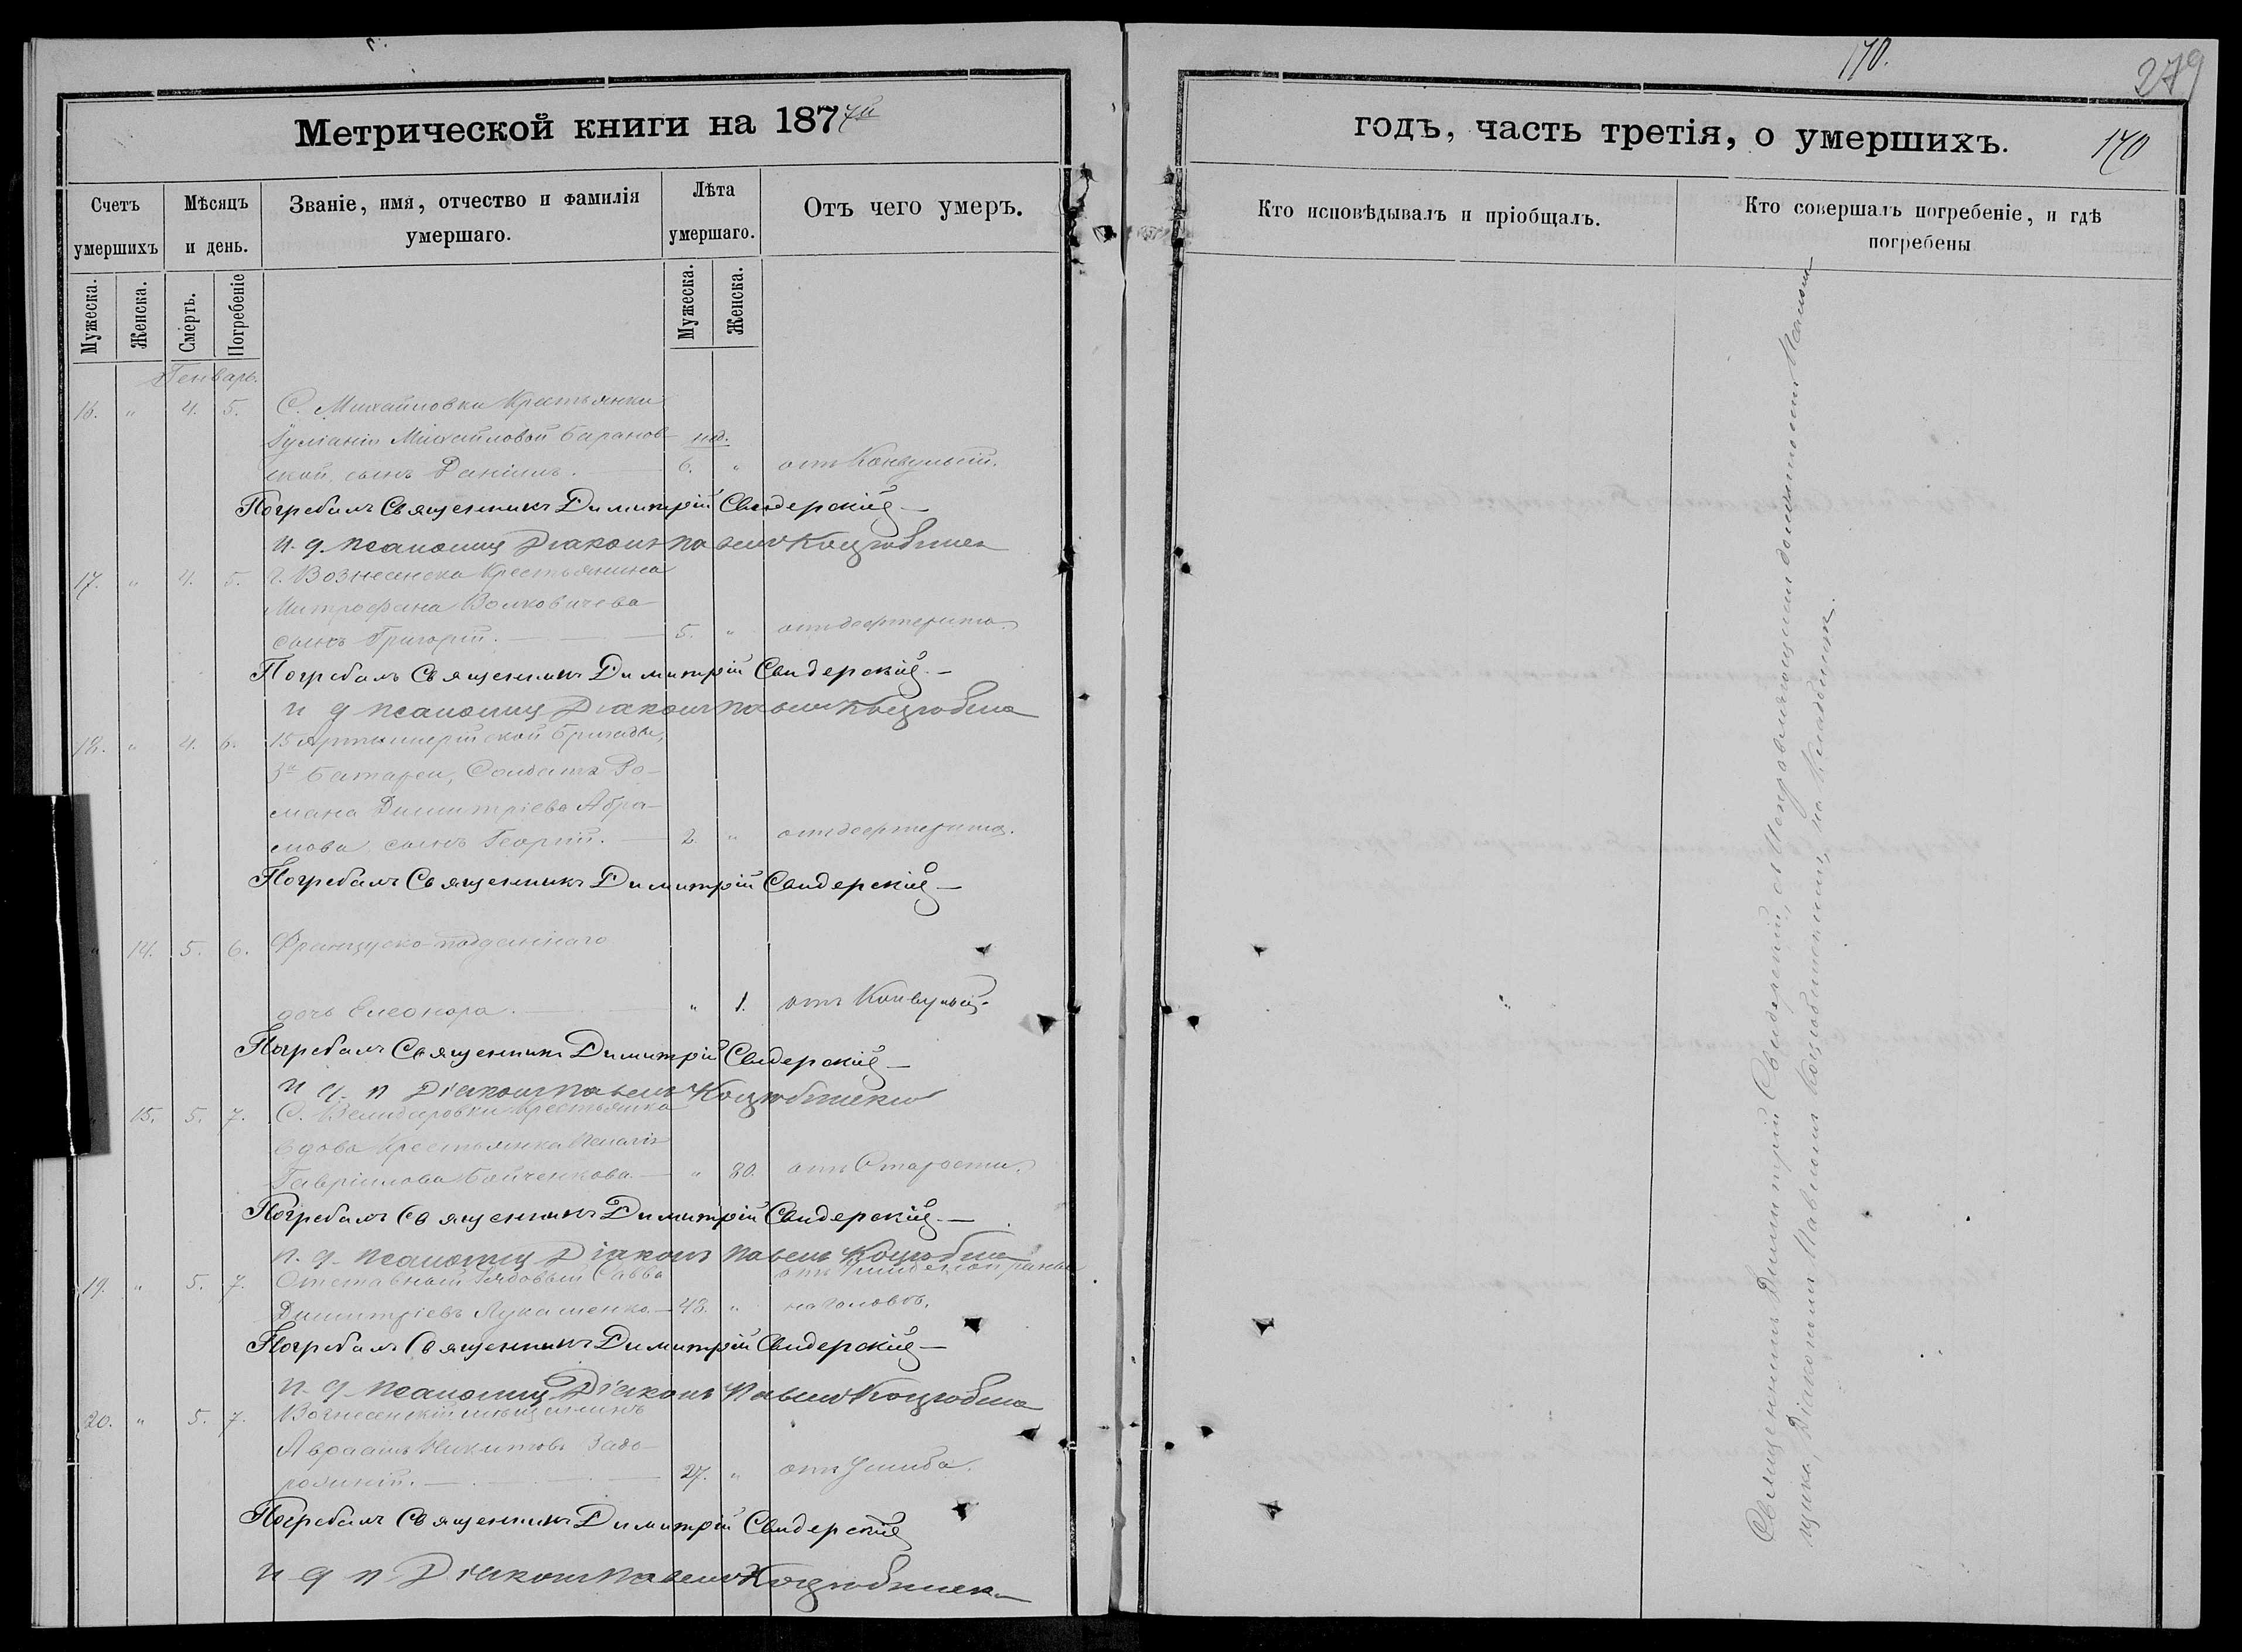 170.
279
Метрической книги на 1877й
годъ, часть третія, о умершихъ.
170
Счетъ умершихъ
Мѣсяцъ и день.
Званіе, имя, отчество и фамилія умершаго.
Лѣта умершаго.
Отъ чего умеръ.
Кто исповѣдывалъ и пріобщалъ.
Кто совершалъ погребеніе, и гдѣ
погребены
Мужеска.
Женска.
Смерть.
Погребеніе
Мужеска.
Женска.
Генварь.
16. " 4. 5. С. Михайловки Крестьянки
Іуліаніи Михайловой Баранов- нед.
ской, сынъ Даніилъ. 6. " отъ Конвульсій.
Погребалъ Священникъ Димитрій Свидерскій
и. д. псаломщ Діаконъ Павелъ
17. " 4. 5. г. Вознесенска Крестьянина
Митрофана Волковичева
сынъ Григорій. 5. " отъ дефтерита.
Погребалъ Священникъ Димитрій Свидерскій
и д псаломщ Діаконъ Павелъ
18. " 4. 6. 15 Артиллерійской бригады,
3й батареи, Солдата Ро-
мана Димитріева Абра-
мова, сынъ Георгій. 2. " отъ дефтерита.
Погребалъ Священникъ Димитрій Свидерскій
" 14. 5. 6. Французско-подданнаго
дочь Елеонора. " 1. отъ Конвульсій.
Погребалъ Священникъ Димитрій Свидерскій
и д. п Діаконъ Павелъ
15. 5. 7. С. Крестьянка
вдова Крестьянка Пелагія
Гавріилова Бойченкова. " 80. отъ Старости.
Погребалъ Священникъ Димитрій Свидерскій
и. д. псаломщ Діаконъ Павелъ
19. " 5. 7. Отставный Рядовый Савва отъ
Димитріевъ Лукашенко. 48. " на головѣ.
Погребалъ Священникъ Димитрій Свидерскій
и д псаломщ Діаконъ Павелъ
20. " 5. 7. Вознесенскій мѣщанинъ
Авраамъ Никитовъ Задо-
рожній. 27. " отъ Ушиба.
Погребалъ Священникъ Димитрій Свидерскій
и д п Діаконъ Павелъ
Священникъ Димитрій Свидерскій, съ исправляющимъ должность Псалом
щика, Діакономъ Павломъ на Кладбищѣ.